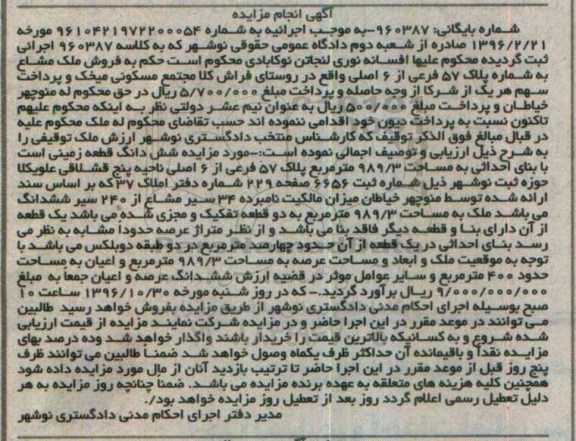 آگهی انجام مزایده
شماره بایگانی: ۹۶۰۳۸۷-به موجب اجرائیه به شماره ۹۶۱۰۴۲۱۹۷۲۲۰۰۰۵۴ مورخه
۱۳۹۶/۲/۲۱ صادره از شعبه دوم دادگاه عمومی حقوقی نوشهر که به کلاسه ۹۶۰۳۸۷ اجرائی
ثبت گردیده محکوم علیها افسانه نوری لنجانن نوکابادی محکوم است حکم به فروش ملک مشاع
به شماره پلاک ۵۷ فرعی از ۶ اصلی واقع در روستای فراش کلا مجتمع مسکونی میخک و پرداخت
سهم هر یک از شرکا از وجه حاصله و پرداخت مبلغ ۵/۷۰۰/۰۰۰ ریال در حق محکوم له منوچهر
خیاطان و پرداخت مبلغ ۵۰۰/۰۰۰ ریال به عنوان نیم عشر دولتی نظر به اینکه محکوم علیهم
تاکنون نسبت به پرداخت دیون خود اقدامی ننموده اند حسب تقاضای محکوم له ملک محکوم علیه
در قبال مبالغ فوق الذکر توقیف که کارشناس منتخب دادگستری نوشهر ارزش ملک توقیفی را
به شرح ذیل ارزیابی و توصیف اجمالی نموده است:-مورد مزایده شش دانگ قطعه زمینی است
با بنای احداثی به مساحت ۹۸۹/۳ مترمربع پلاک ۵۷ فرعی از ۶ اصلی ناحیه پنج قشلاقی علویکلا
حوزه ثبت نوشهر ذیل شماره ثبت ۶۶۵۶ صفحه ۲۲۹ شماره دفتر املاک ۳۷ که بر اساس سند
ارائه شده توسط منوچهر خیاطان میزان مالکیت نامبرده ۳۴ سیر مشاع از ۲۴۰ سیر ششدانگ
می باشد ملک به مساحت ۹۸۹/۳ مترمربع به دو قطعه تفکیک و مجزی شده می باشد یک قطعه
از آن دارای بنا و قطعه دیگر فاقد بنا می باشد و از نظر متراژ عرصه حدوداً مشابه به نظر می
رسد بنای احداثی در یک قطعه از آن حدود چهارصد مترمربع در دو طبقه دوبلکس می باشد با
توجه به موقعیت ملک و ابعاد و مساحت عرصه به مساحت ۹۸۹/۳ مترمربع و اعیان به مساحت
حدود ۴۰۰ مترمربع و سایر عوامل موثر در قضیه ارزش ششدانگ عرصه و اعیان جمعاً به مبلغ
۹/۰۰۰/۰۰۰/۰۰۰ ریال برآورد گردید.- که در روز شنبه مورخه ۱۳۹۶/۱۰/۳۰ ساعت ۱۰
صبح بوسیله اجرای احکام مدنی دادگستری نوشهر از طریق مزایده بفروش خواهد رسید طالبین
می توانند در موعد مقرر در این اجرا حاضر و در مزایده شرکت نمایند مزایده از قیمت ارزیابی
شده شروع و به کسانیکه بالاترین قیمت را خریدار باشند واگذار خواهد شد وده درصد بهای
مزایده نقداً و باقیمانده آن حداکثر ظرف یکماه وصول خواهد شد ضمناً طالبین می توانند ظرف
پنج روز قبل از موعد مقرر در این اجرا حاضر تا ترتیب بازدید آنان از مال مورد مزایده داده شود
همچنین کلیه هزینه های متعلقه به عهده برنده مزایده می باشد. ضمنا چنانچه روز مزایده به هر
دلیل تعطیل رسمی اعلام گردد روز بعد از تعطیل روز مزایده خواهد بود/.
مدیر دفتر اجرای احکام مدنی دادگستری نوشهر